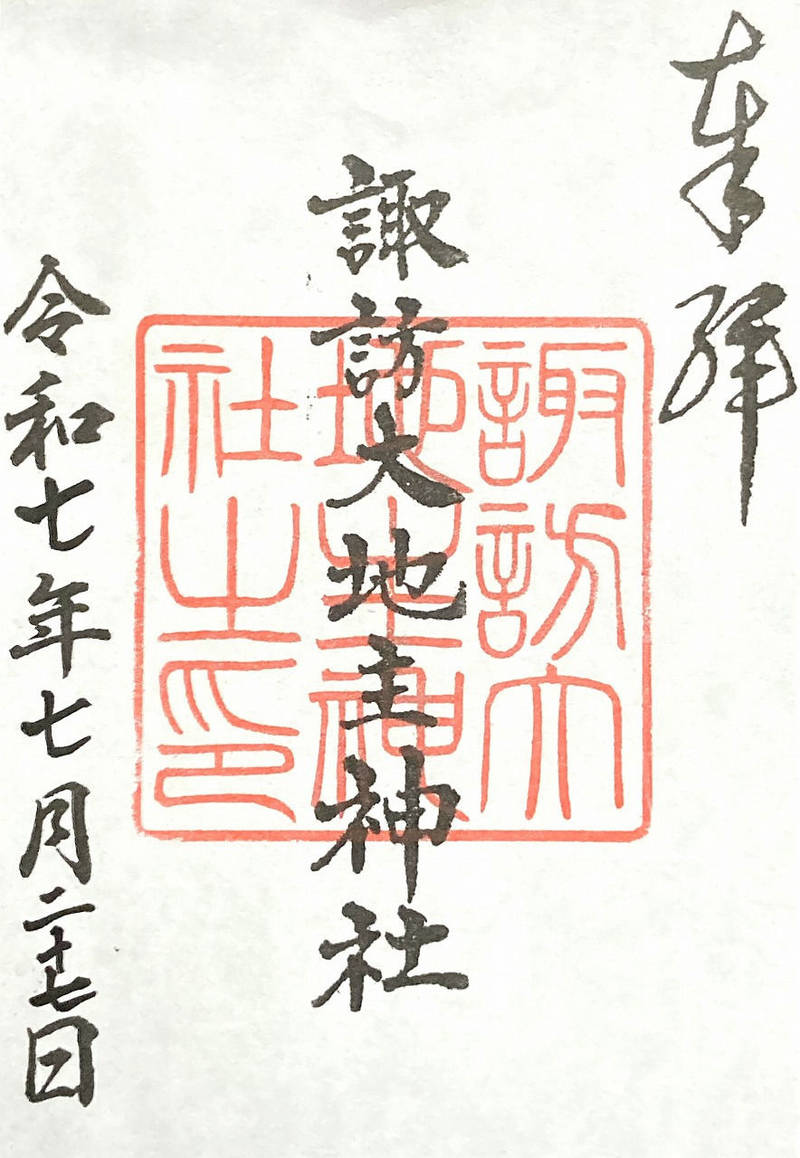 奉拝
諏訪大地主神社
令和七年七月二十七日
諏訪大
地主神
社之印